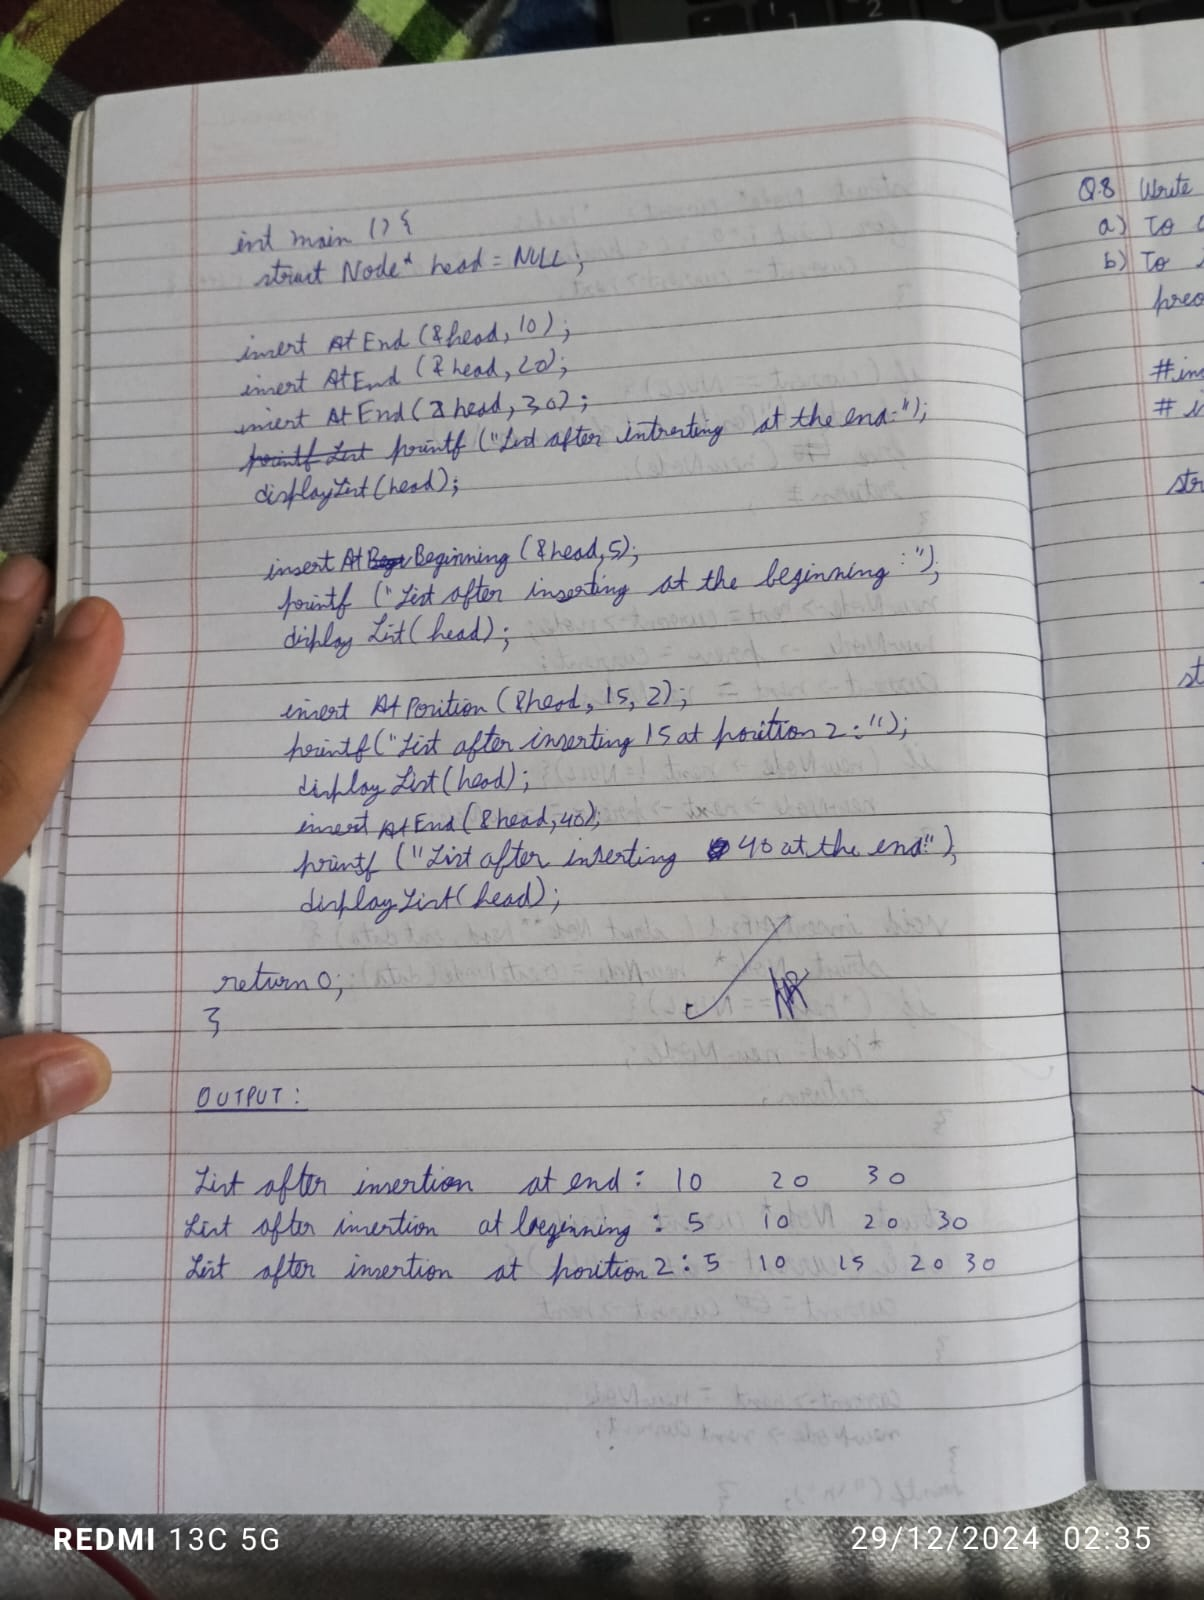 int main () {
struct Node* head = NULL;
insert At End (&head, 10);
insert At End (& head, 20);
insert At End (& head, 30);
printf List printf ("List after intrerting at the end:");
displayList (head);
insert At Bege Beginning (&head,5);
printf ("List after inserting at the beginning :");
display List (head);
insert At Position (&head, 15, 2);
printf ("List after inserting 15 at position 2:");
display List (head);
insert At End (&head, 40);
printf ("List after inserting 40 at the end:");
display List (head);
return 0;
}
OUTPUT:
List after insertion at end: 10 20 30
List after insertion at beginning : 5 10 20 30
List after insertion at position 2: 5 10 15 20 30
Q.8 Write
a) To
b) To
#
#
REDMI 13C 5G
29/12/2024 02:35